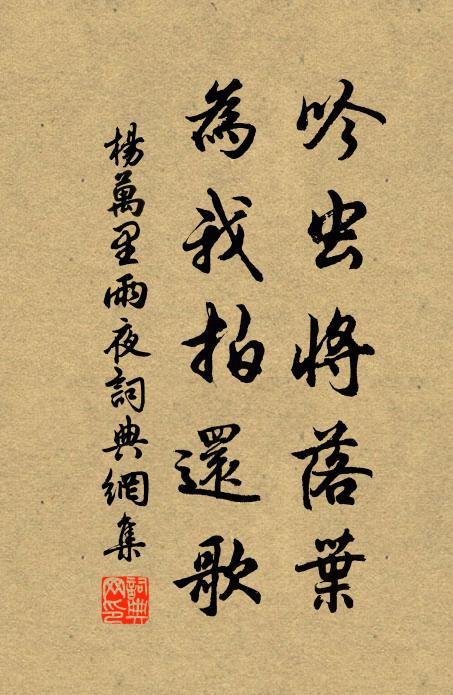 吟虫將落葉
為我拍還歌
楊萬里雨夜詞典網集
詞典網印